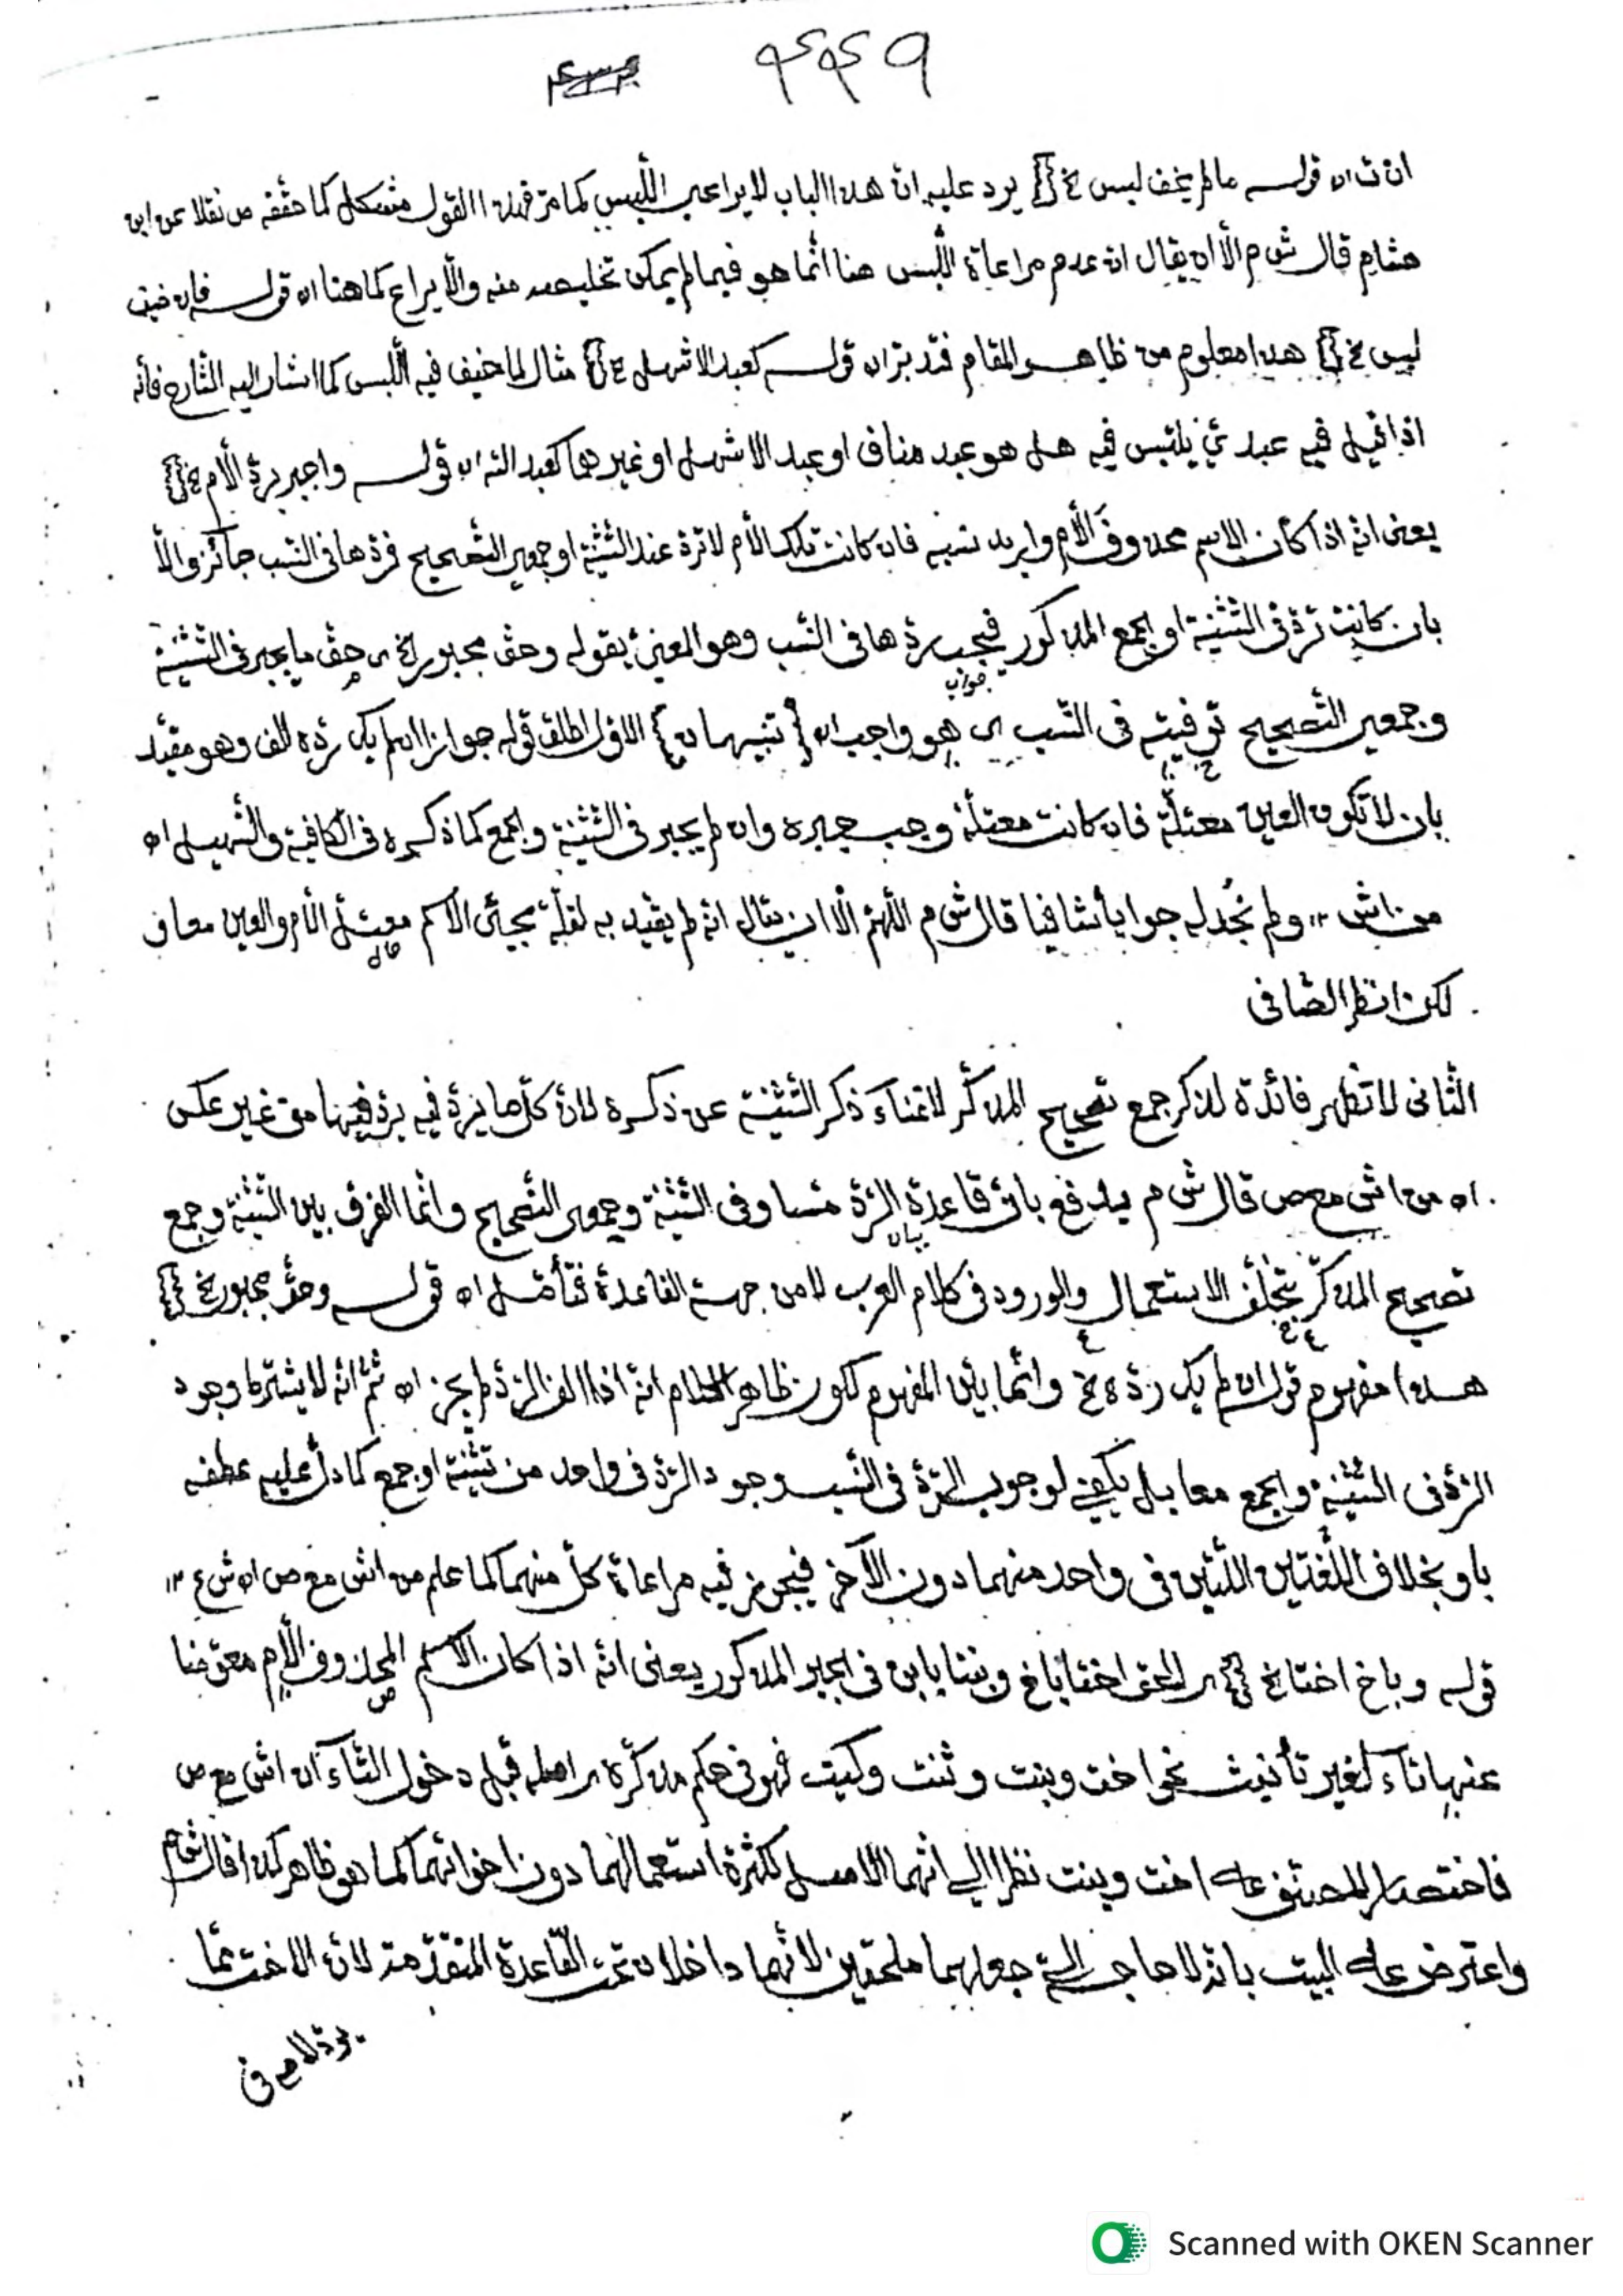 ۴۴۹
ان ث اه قولـــه ما لم يخف لبس خ يرد عليه انّ هذا الباب لا يراعي اللّبس كما مرّ فهذا القول مشكل كما حقّقه ص نقلا عن ابن
هشام قال ش م الّا ان يقال انّ عدم مراعاة اللّبس هنا انّما هو فيما لم يمكن تخليصه منه والّا يراع كما هنا اه قولـــه فان خيف
لبس خ هذا معلوم من ظاهر المقام فتدبّر اه قولـــه كعبد الاشهل خ مثال لما خيف فيه اللّبس كما اشار اليه الشّارح فانّه
اذا قيل فيه عبديّ يلتبس فيه هل هو عبد مناف او عبد الاشهل او غيرهما كعبد الله اه قولـــه واجبر بردّ الّام خ
يعنى انّه اذا كان الاسم محذوف الّام واريد نسبه فان كانت تلك الّام لا تردّ عند التّثنية او جمعي التّصحيح فردّها فى النّسب جائز والّا
بان كانت تردّ فى التّثنية او الجمع المذكور فيجب ردّها فى النّسب وهو المعنيّ بقوله وحقّ مجبور الخ اى حقّ ما يجبر فى التّثنية
وجمعي التّصحيح توفيته فى النّسب اى هو واجب اه {تنبيهان} الاوّل اطلق قوله جوازا ان لم يك ردّه الف وهو مقيّد
جواب
بان لا تكون العين معتلّة فان كانت معتلّة وجب جبره وان لم يجبر فى التّثنية والجمع كما ذكره فى الكافية والتّسهيل اه
من اش ١٢ ولم نجد له جوابا شافيا قال ش م اللّهمّ الّا ان يقال انّه لم يقيّد به لقلّة مجيئ الاسم معتلّ الّام والعين معا ف
لكن انظر الصّافى
الثّانى لا تظهر فائدة لذكر جمع تصحيح المذكّر لاغناء ذكر التّثنية عن ذكره لانّ كلّ ما يردّ فيه يردّ فيها من غير عكس
اه من اش مع ص قال ش م يدفع بانّ قاعدة الرّدّ متساو فى التّثنية وجمعي التّصحيح وانّما الفرق بين التّثنية وجمع
بيان
تصحيح المذكّر بتخلّف الاستعمال والورود فى كلام العرب لا من جهة القاعدة فتأمّل اه قولـــه وحقّ مجبور خ
هذا مفهوم قوله ان لم يك ردّه خ وانّما بيّن المفهوم لكون ظاهر الكلام انّه اذا الف الرّدّ لم يجز اه ثمّ انّه لا يشترط وجود
الرّدّ فى التّثنية والجمع معا بل يكفي لوجوب الرّدّ فى النّسب وجود الرّدّ فى واحد من تثنية او جمع كما دلّ عليه عطفه
باو بخلاف اللّغتين اللّتين فى واحد منهما دون الآخر فيجوز فيه مراعاة كلّ منهما كما علم من اش مع ص اه ش ع ١٢
قوله وباخ اختا خ اى الحق اختا باخ وبنتا بابن فى الجبر المذكور يعنى انّه اذا كان الاسم المحذوف الّام معوّضا
عنها تاء لغير تأنيث نحو اخت وبنت وثنت وكيت فهو فى حكم مذكّره اى اصله قبل دخول التّاء اه اش مع ص
فاختصار المصنّف على اخت وبنت نظرا الي انّهما الاصل لكثرة استعمالهما دون اخواتهما كما هو ظاهر كذا قال ش م
واعترض على البيت بانّه لا حاجة الي جعلهما ملحقين لانّهما داخلان تحت القاعدة المتقدّمة لانّ الاخت ممّا
يردّ لامه فى
Scanned with OKEN Scanner